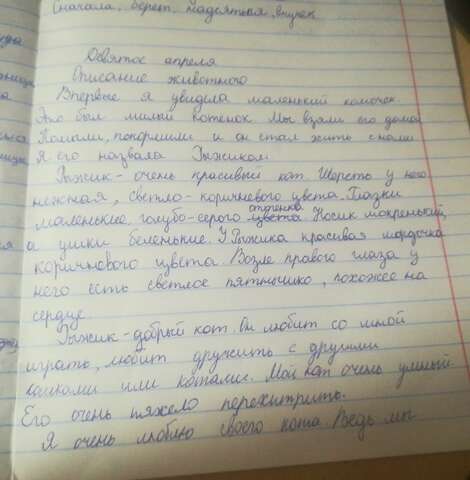 Сначала, берет, надсятная, внучек
Девятое апреля
Описание животного
Впервые я увидела маленький комочек.
Это был милый котёнок. Мы взяли его домой
Помыли, покормили и он стал жить с нами
Я его назвала Рыжиком.
Рыжик - очень красивый кот. Шерсть у него
нежная, светло-коричневого цвета. Глазки
маленькие, голубо-серого цвета оттенка Носик мокренький,
а ушки беленькие. У Рыжика красивая мордочка
коричневого цвета. Возле правого глаза у
него есть светлое пятнышко, похожее на
сердце.
Рыжик - добрый кот. Он любит со мной
играть, любит дружить с другими
кошками или котами. Мой кот очень умный.
Его очень тяжело перехитрить.
Я очень люблю своего кота. Ведь мы